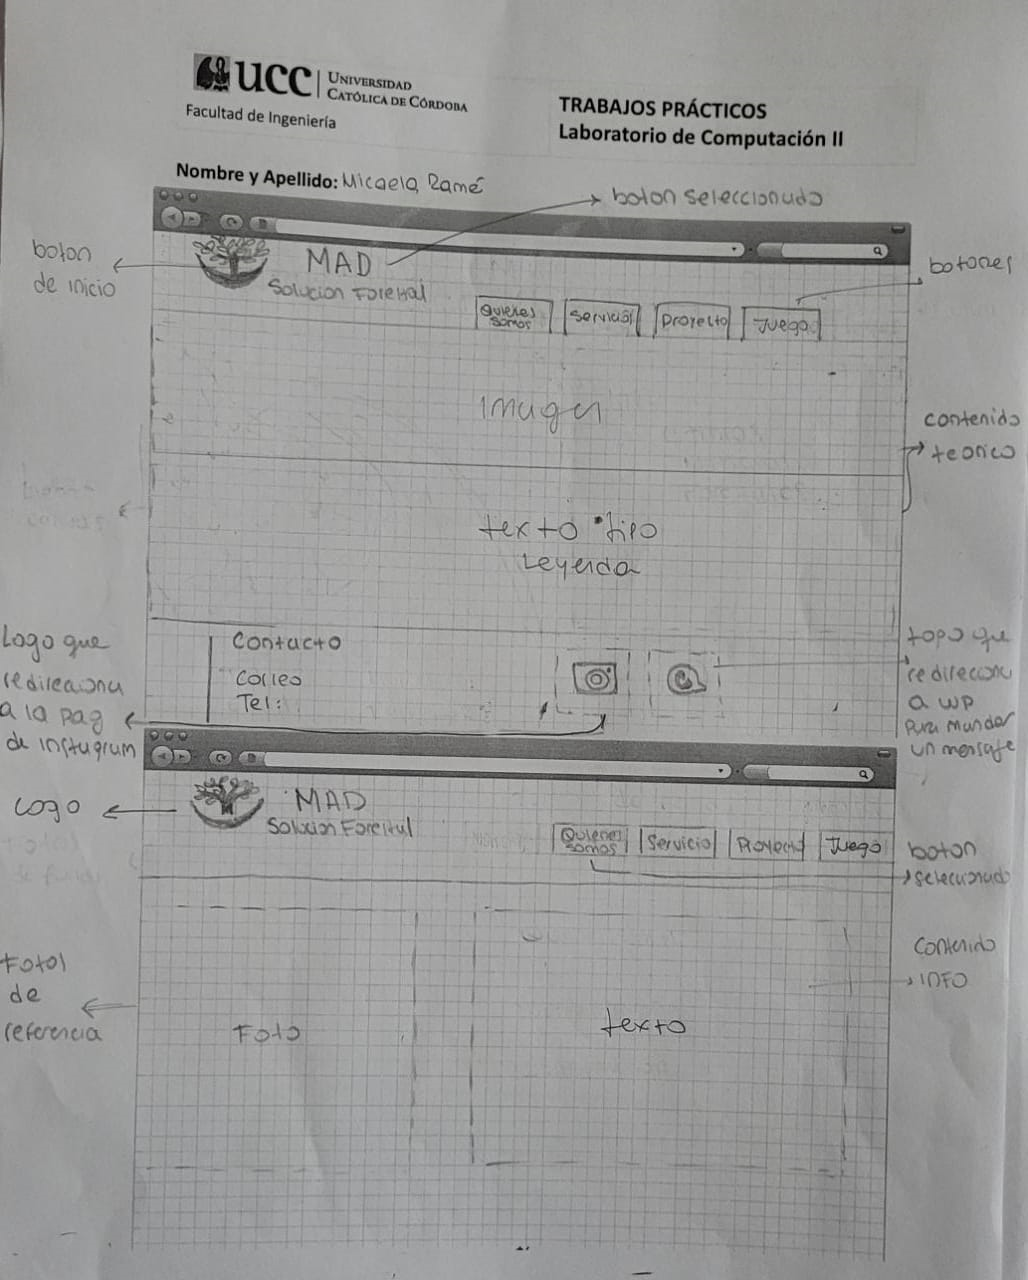 UCC
UNIVERSIDAD
CATÓLICA DE CÓRDOBA
Facultad de Ingeniería
TRABAJOS PRÁCTICOS
Laboratorio de Computación II
Nombre y Apellido: Micaela Ramé
boton seleccionado
boton
de inicio
MAD
Solucion Forestal
botones
Quienes
somos
Servicios
Proyecto
Juego
imagen
contenido
teorico
texto tipo
Leyenda
Logo que
redirecciona
a la pag
de instagram
Contacto
Correo
Tel:
topo que
redirecciona
a wp
para mandar
un mensaje
Logo
MAD
Solucion Forestal
Quienes
somos
Servicio
Proyecto
Juego
boton
selecionado
Fotos
de
referencia
Foto
texto
Contenido
INFO